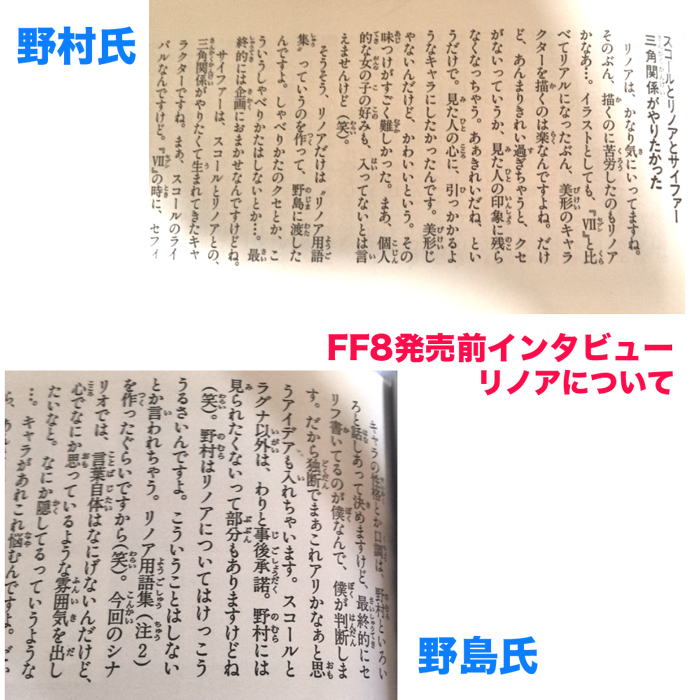 野村氏
スコールとリノアとサイファー
三角関係がやりたかった
リノアは、かなり気にいってますね。
そのぶん、描くのに苦労したのもリノア
かなあ…。イラストとしても、『Ⅶ』と比
べてリアルになったぶん、美形のキャラ
クターを描くのは楽なんですよね。だけ
ど、あんまりきれい過ぎちゃうと、クセ
がないっていうか、見た人の印象に残ら
なくなっちゃう。ああきれいだね、とい
うだけで。見た人の心に、引っかかるよ
うなキャラにしたかったんです。美形じ
ゃないんだけど、かわいいという。その
味つけがすごく難しかった。まあ、個人
的な女の子の好みも、入ってないとは言
えませんけど（笑）。
そうそう、リノアだけは〝リノア用語
集〟っていうのを作って、野島に渡した
んですよ。しゃべりかたのクセとか、こ
ういうしゃべりかたはしないとか…。最
終的には企画におまかせなんですけどね。
サイファーは、スコールとリノアとの、
三角関係がやりたくて生まれてきたキャ
ラクターですね。まあ、スコールのライ
バルなんですけど。『Ⅶ』の時に、セフィ
FF8発売前インタビュー
リノアについて
キャラの性格とか口調は、野村といろい
ろと話しあって決めますけど、最終的にセ
リフ書いてるのが僕なんで、僕が判断しま
す。だから独断でまぁこれアリかなぁと思
うアイデアも入れちゃいます。スコールと
ラグナ以外は、わりと事後承諾。野村には
見られたくないって部分もありますけどね
（笑）。野村はリノアについてはけっこう
うるさいんですよ。こういうことはしない
とか言われちゃう。リノア用語集（注２）
を作ったぐらいですから（笑）。今回のシナ
リオでは、言葉自体はなにげないんだけど、
心でなにか思っているような雰囲気を出し
たいなと。なにか隠してるっていうような
…。キャラがあれこれ悩むんですよ。
野島氏